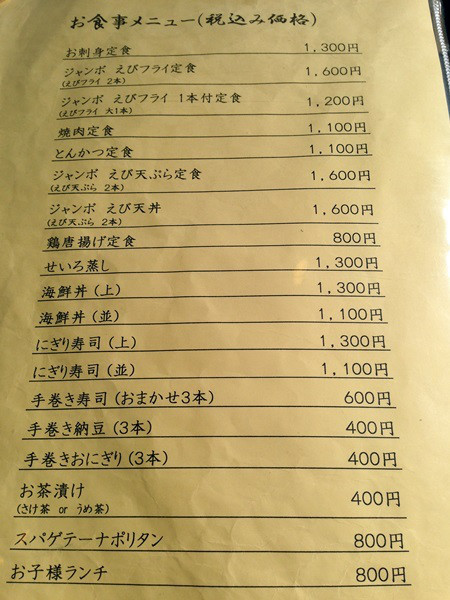 お食事メニュー(税込み価格)
お刺身定食 1,300円
ジャンボ えびフライ定食 1,600円
(えびフライ 2本)
ジャンボ えびフライ 1本付定食 1,200円
(えびフライ 大1本)
焼肉定食 1,100円
とんかつ定食 1,100円
ジャンボ えび天ぷら定食 1,600円
(えび天ぷら 2本)
ジャンボ えび天丼 1,600円
(えび天ぷら 2本)
鶏唐揚げ定食 800円
せいろ蒸し 1,300円
海鮮丼(上) 1,300円
海鮮丼(並) 1,100円
にぎり寿司(上) 1,300円
にぎり寿司(並) 1,100円
手巻き寿司(おまかせ3本) 600円
手巻き納豆(3本) 400円
手巻きおにぎり(3本) 400円
お茶漬け 400円
(さけ茶 or うめ茶)
スパゲテーナポリタン 800円
お子様ランチ 800円